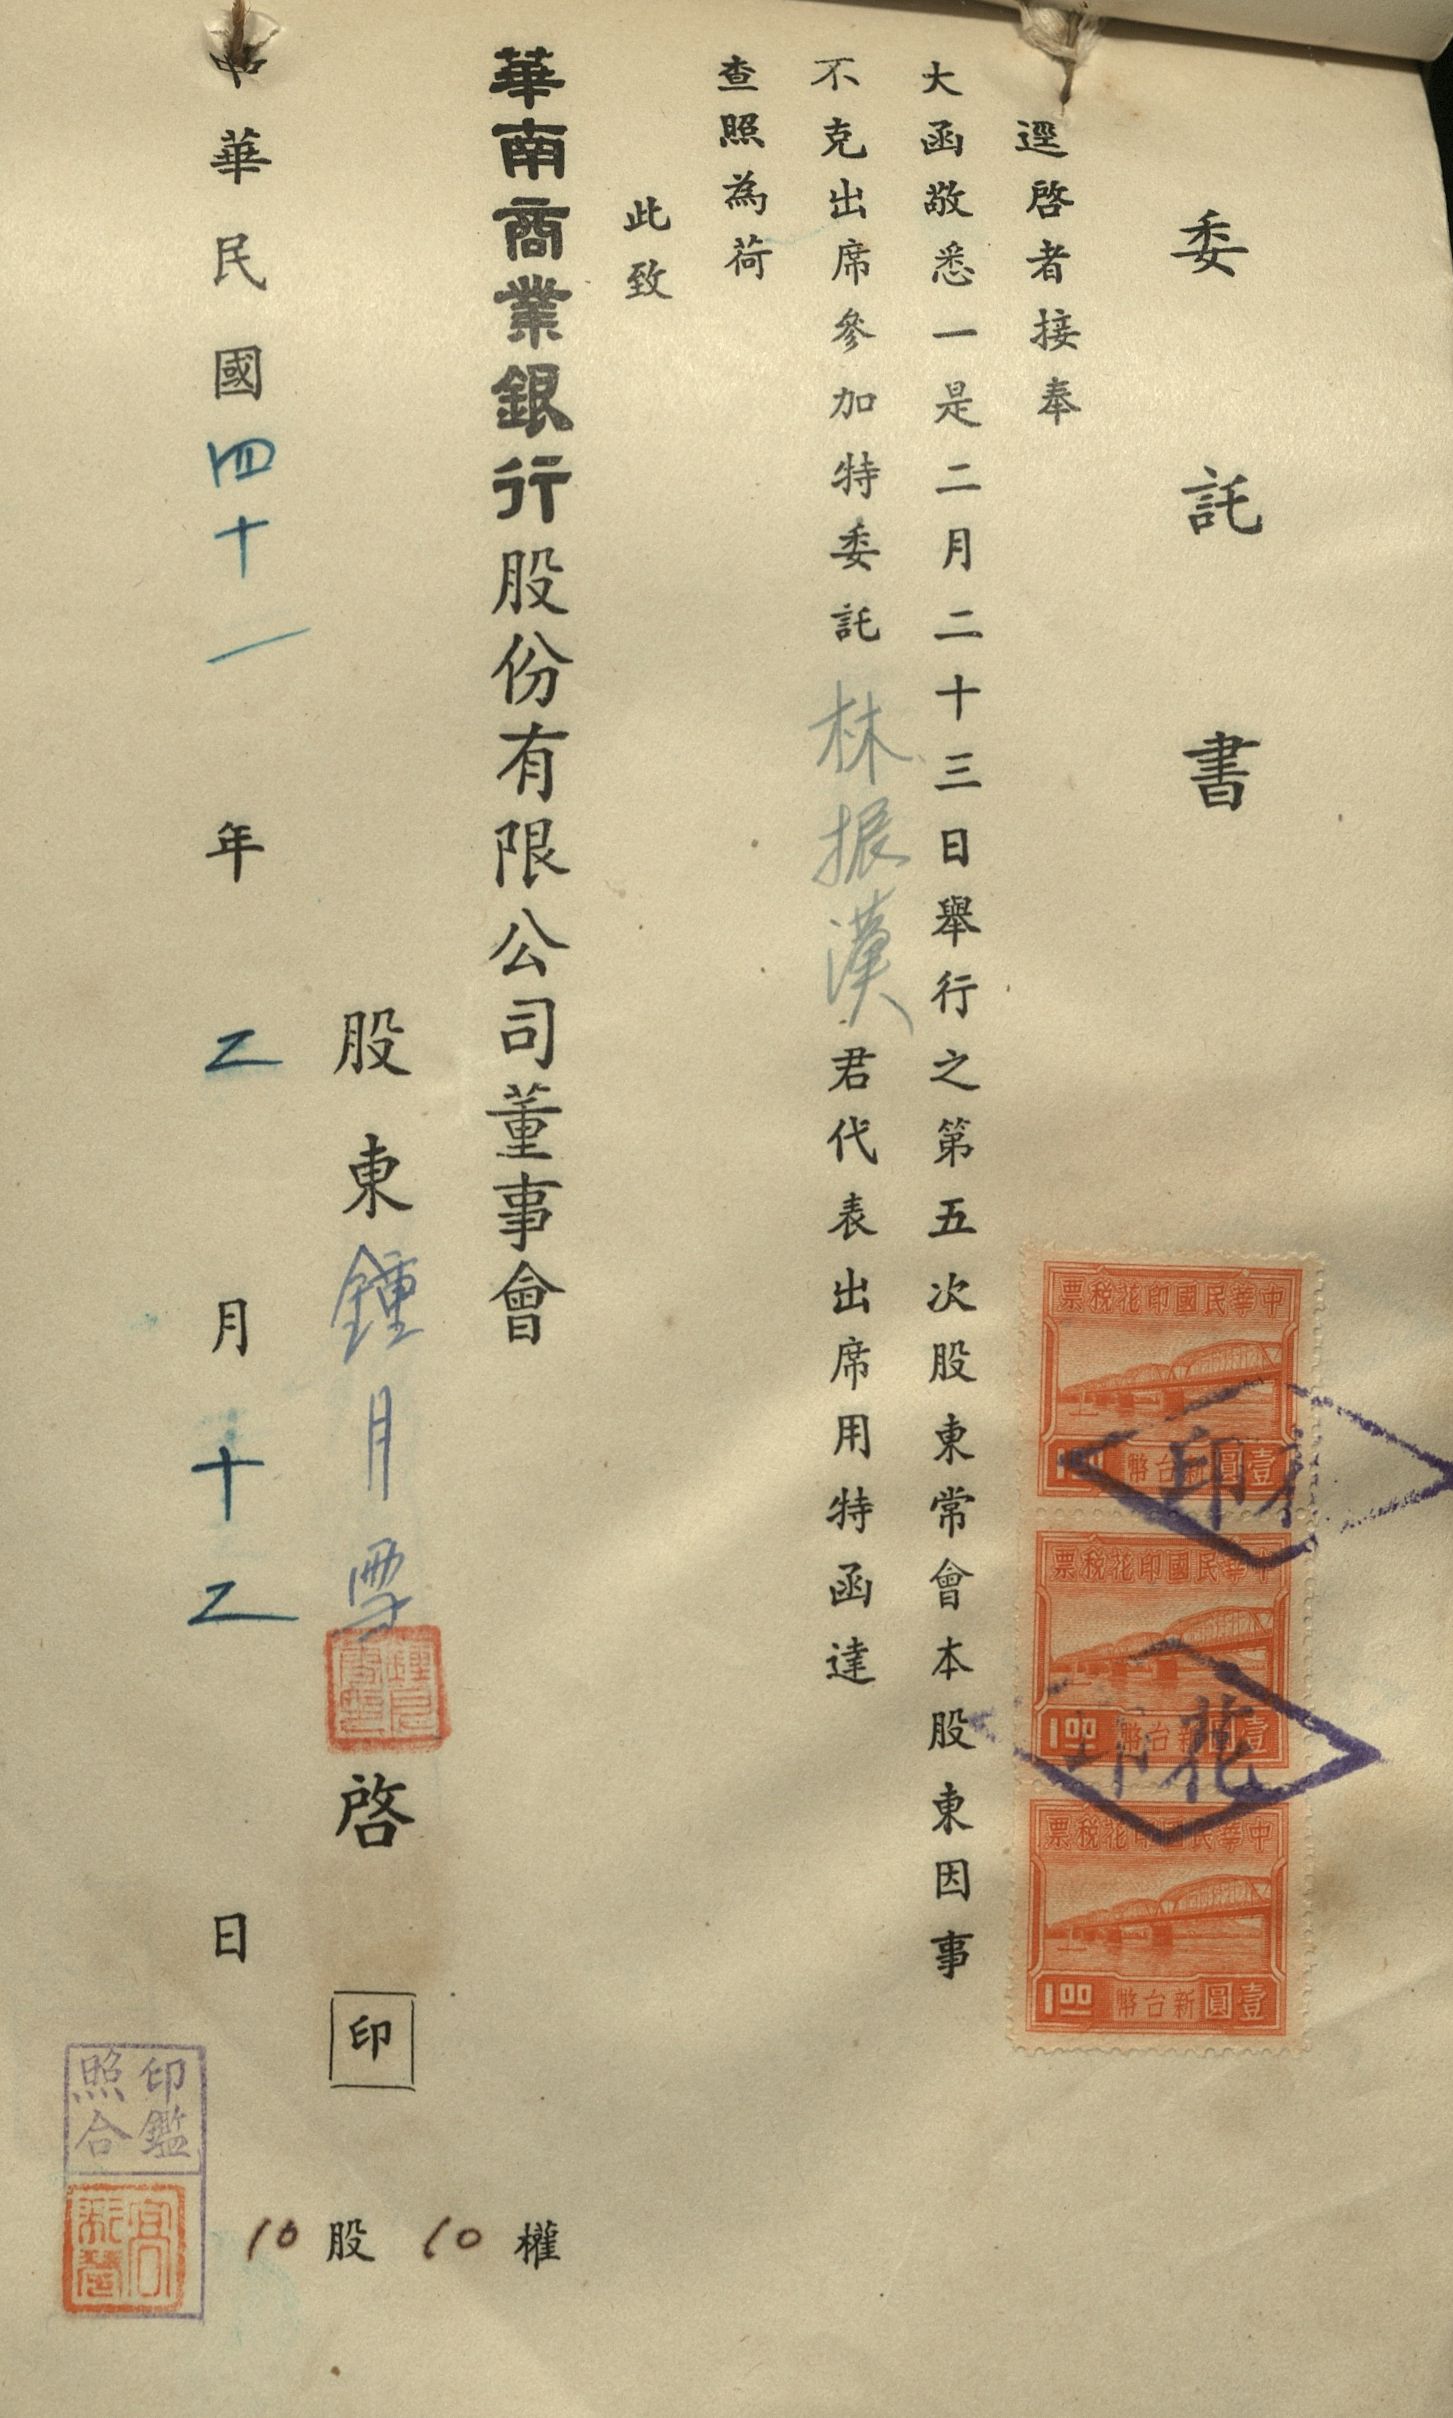 委託書
逕啓者接奉
大函敬悉一是二月二十三日舉行之第五次股東常會本股東因事
不克出席參加特委託林振漢君代表出席用特函達
查照為荷
此致
華南商業銀行股份有限公司董事會
股東鍾月雪啓 印
中華民國四十一年乙月十乙日
10股10權
印鑑
照合
中華民國印花稅票
壹圓新台幣 1.00
中華民國印花稅票
壹圓新台幣 1.00
中華民國印花稅票
壹圓新台幣 1.00
印花
印花